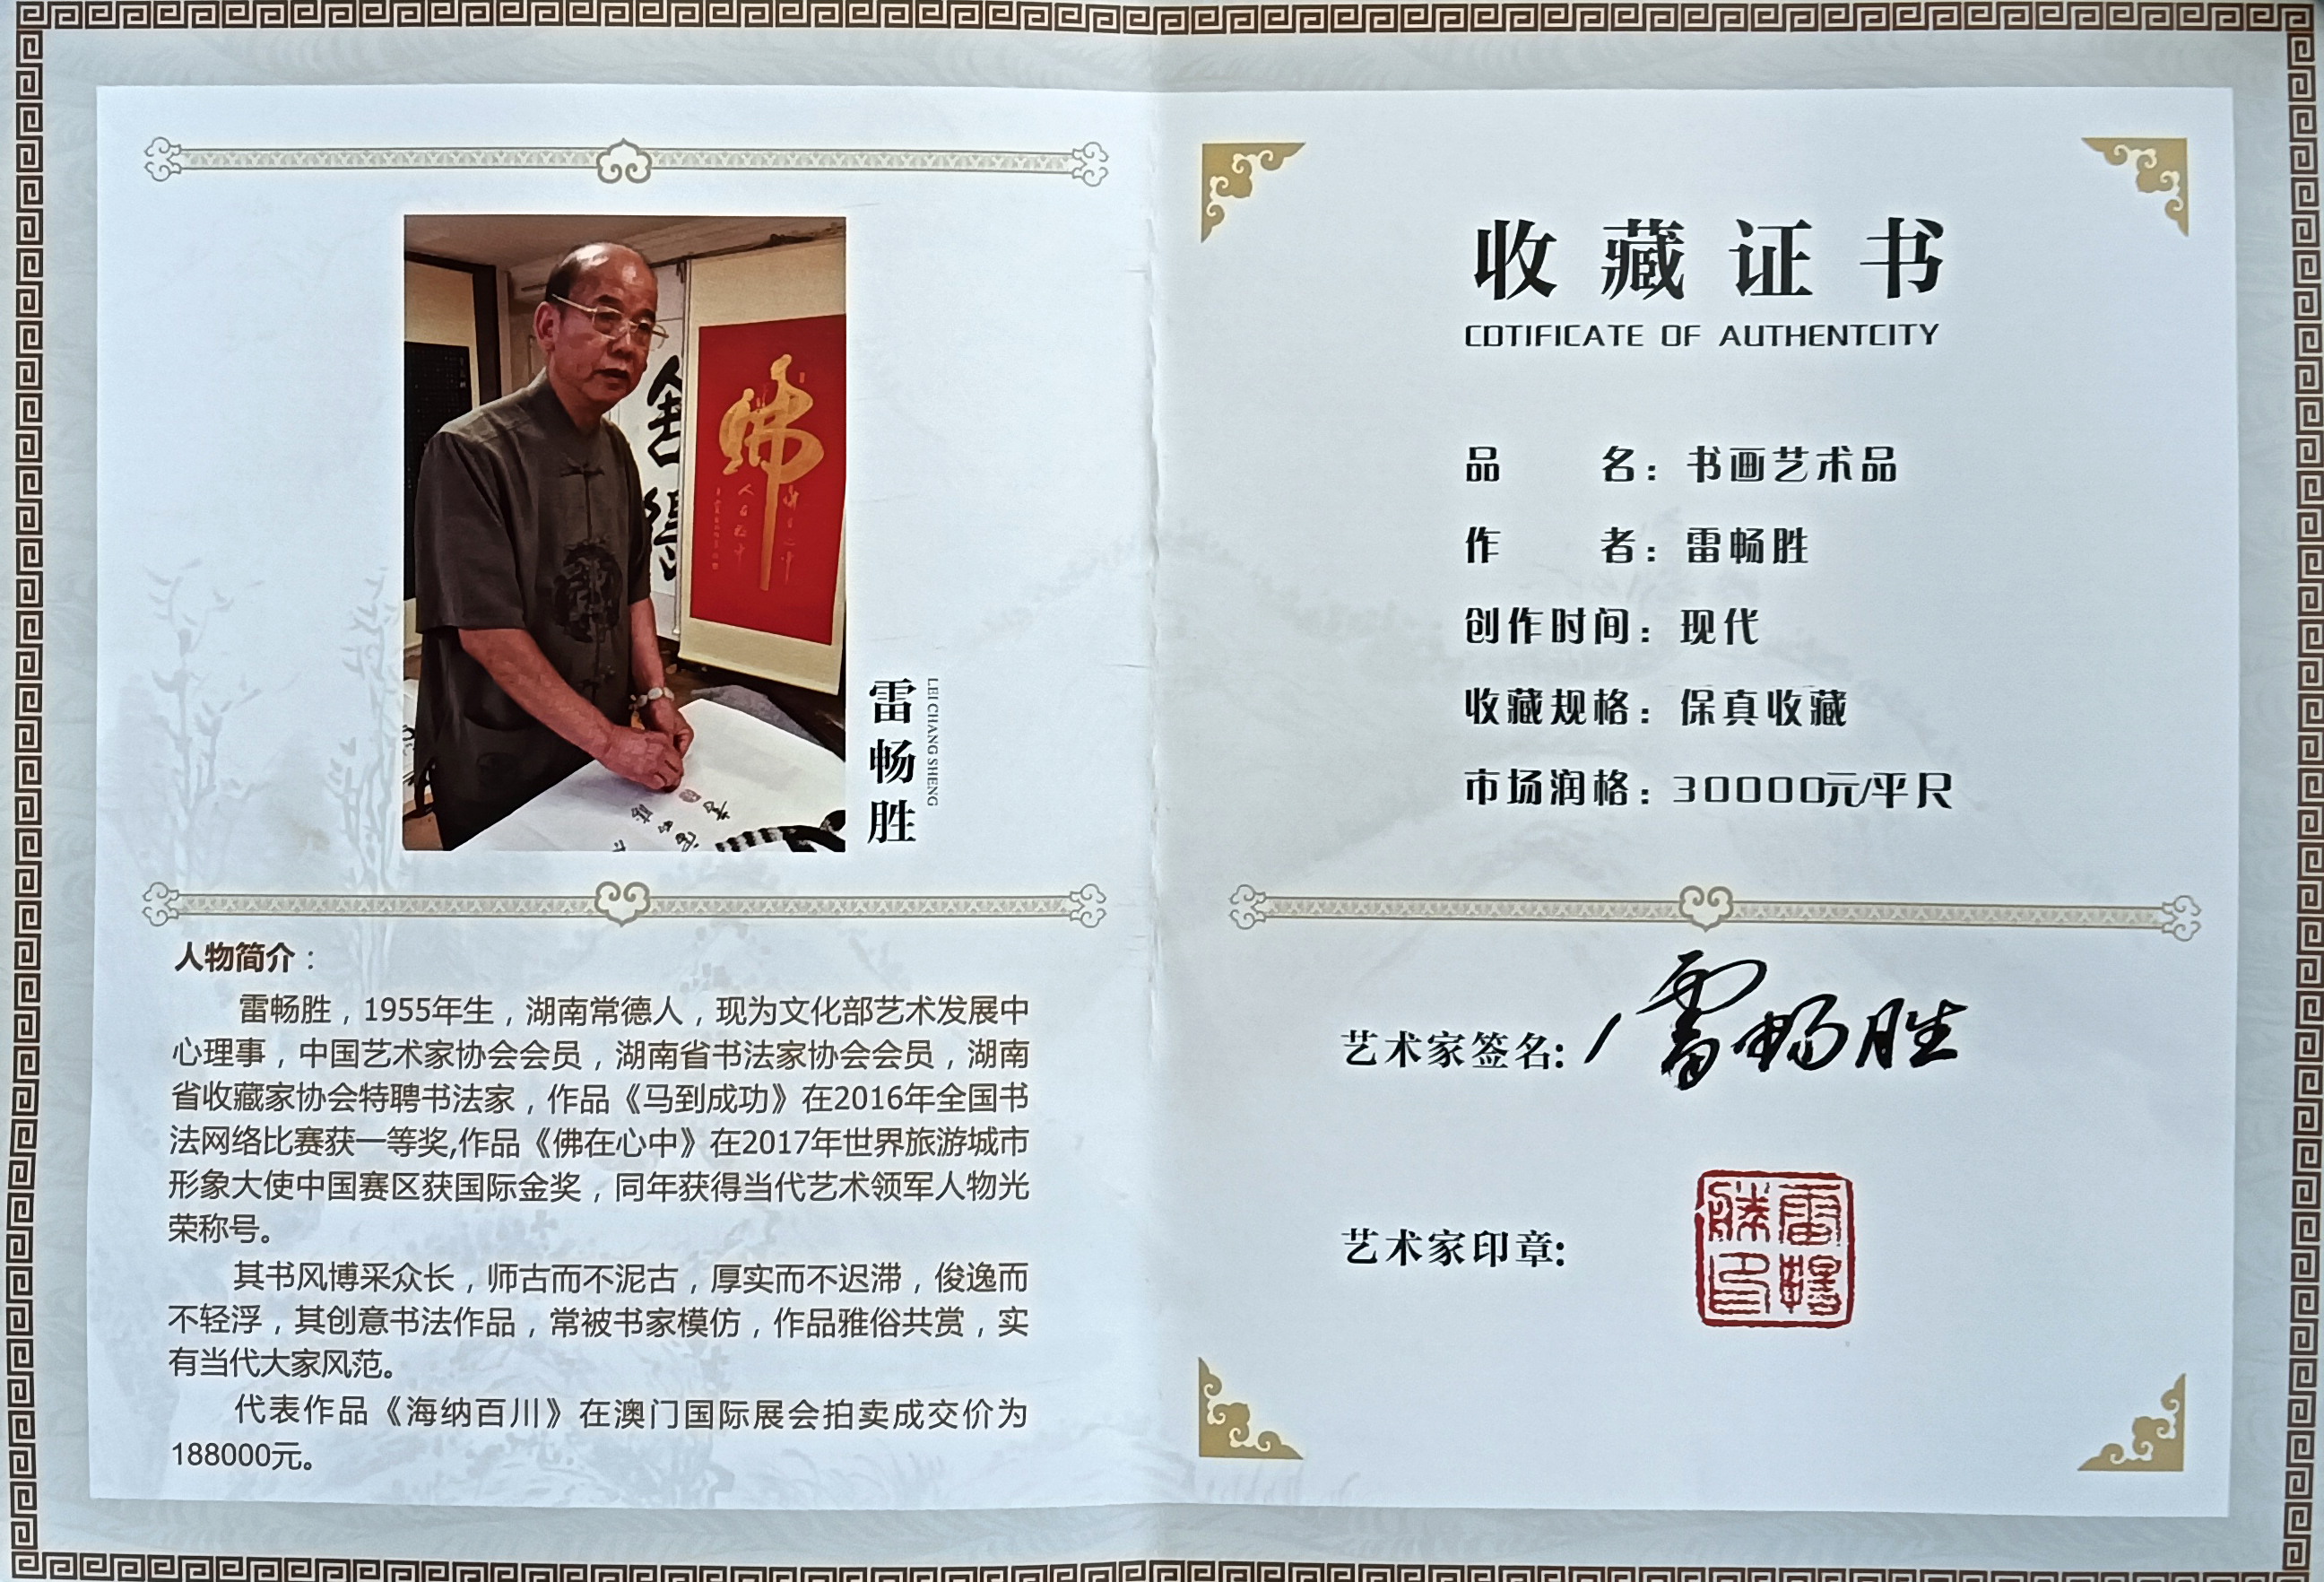 佛
雷畅胜
LEI CHANG SHENG
人物简介：
雷畅胜，1955年生，湖南常德人，现为文化部艺术发展中
心理事，中国艺术家协会会员，湖南省书法家协会会员，湖南
省收藏家协会特聘书法家，作品《马到成功》在2016年全国书
法网络比赛获一等奖,作品《佛在心中》在2017年世界旅游城市
形象大使中国赛区获国际金奖，同年获得当代艺术领军人物光
荣称号。
其书风博采众长，师古而不泥古，厚实而不迟滞，俊逸而
不轻浮，其创意书法作品，常被书家模仿，作品雅俗共赏，实
有当代大家风范。
代表作品《海纳百川》在澳门国际展会拍卖成交价为
188000元。
收藏证书
COTIFICATE OF AUTHENTCITY
品名：书画艺术品
作者：雷畅胜
创作时间：现代
收藏规格：保真收藏
市场润格：30000元/平尺
艺术家签名:雷畅胜
艺术家印章:
雷畅胜印